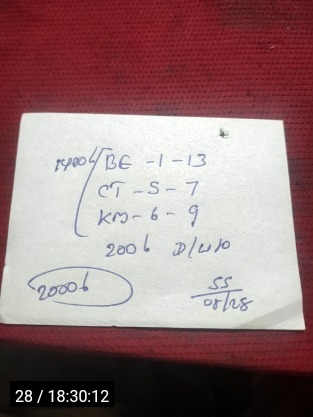 1400b BE - 1 - 13
CT - 5 - 7
KM - 6 - 9
200b
2000b
SS
08/28
28 / 18:30:12